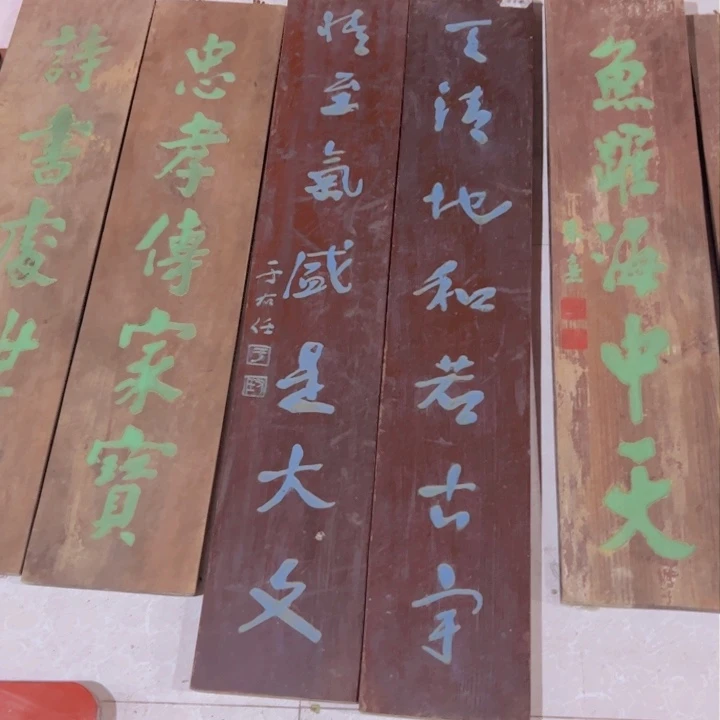 魚躍海中天
天清地和若古宇
情至氣盛是大文
于右任
忠孝傳家寶
詩書處世